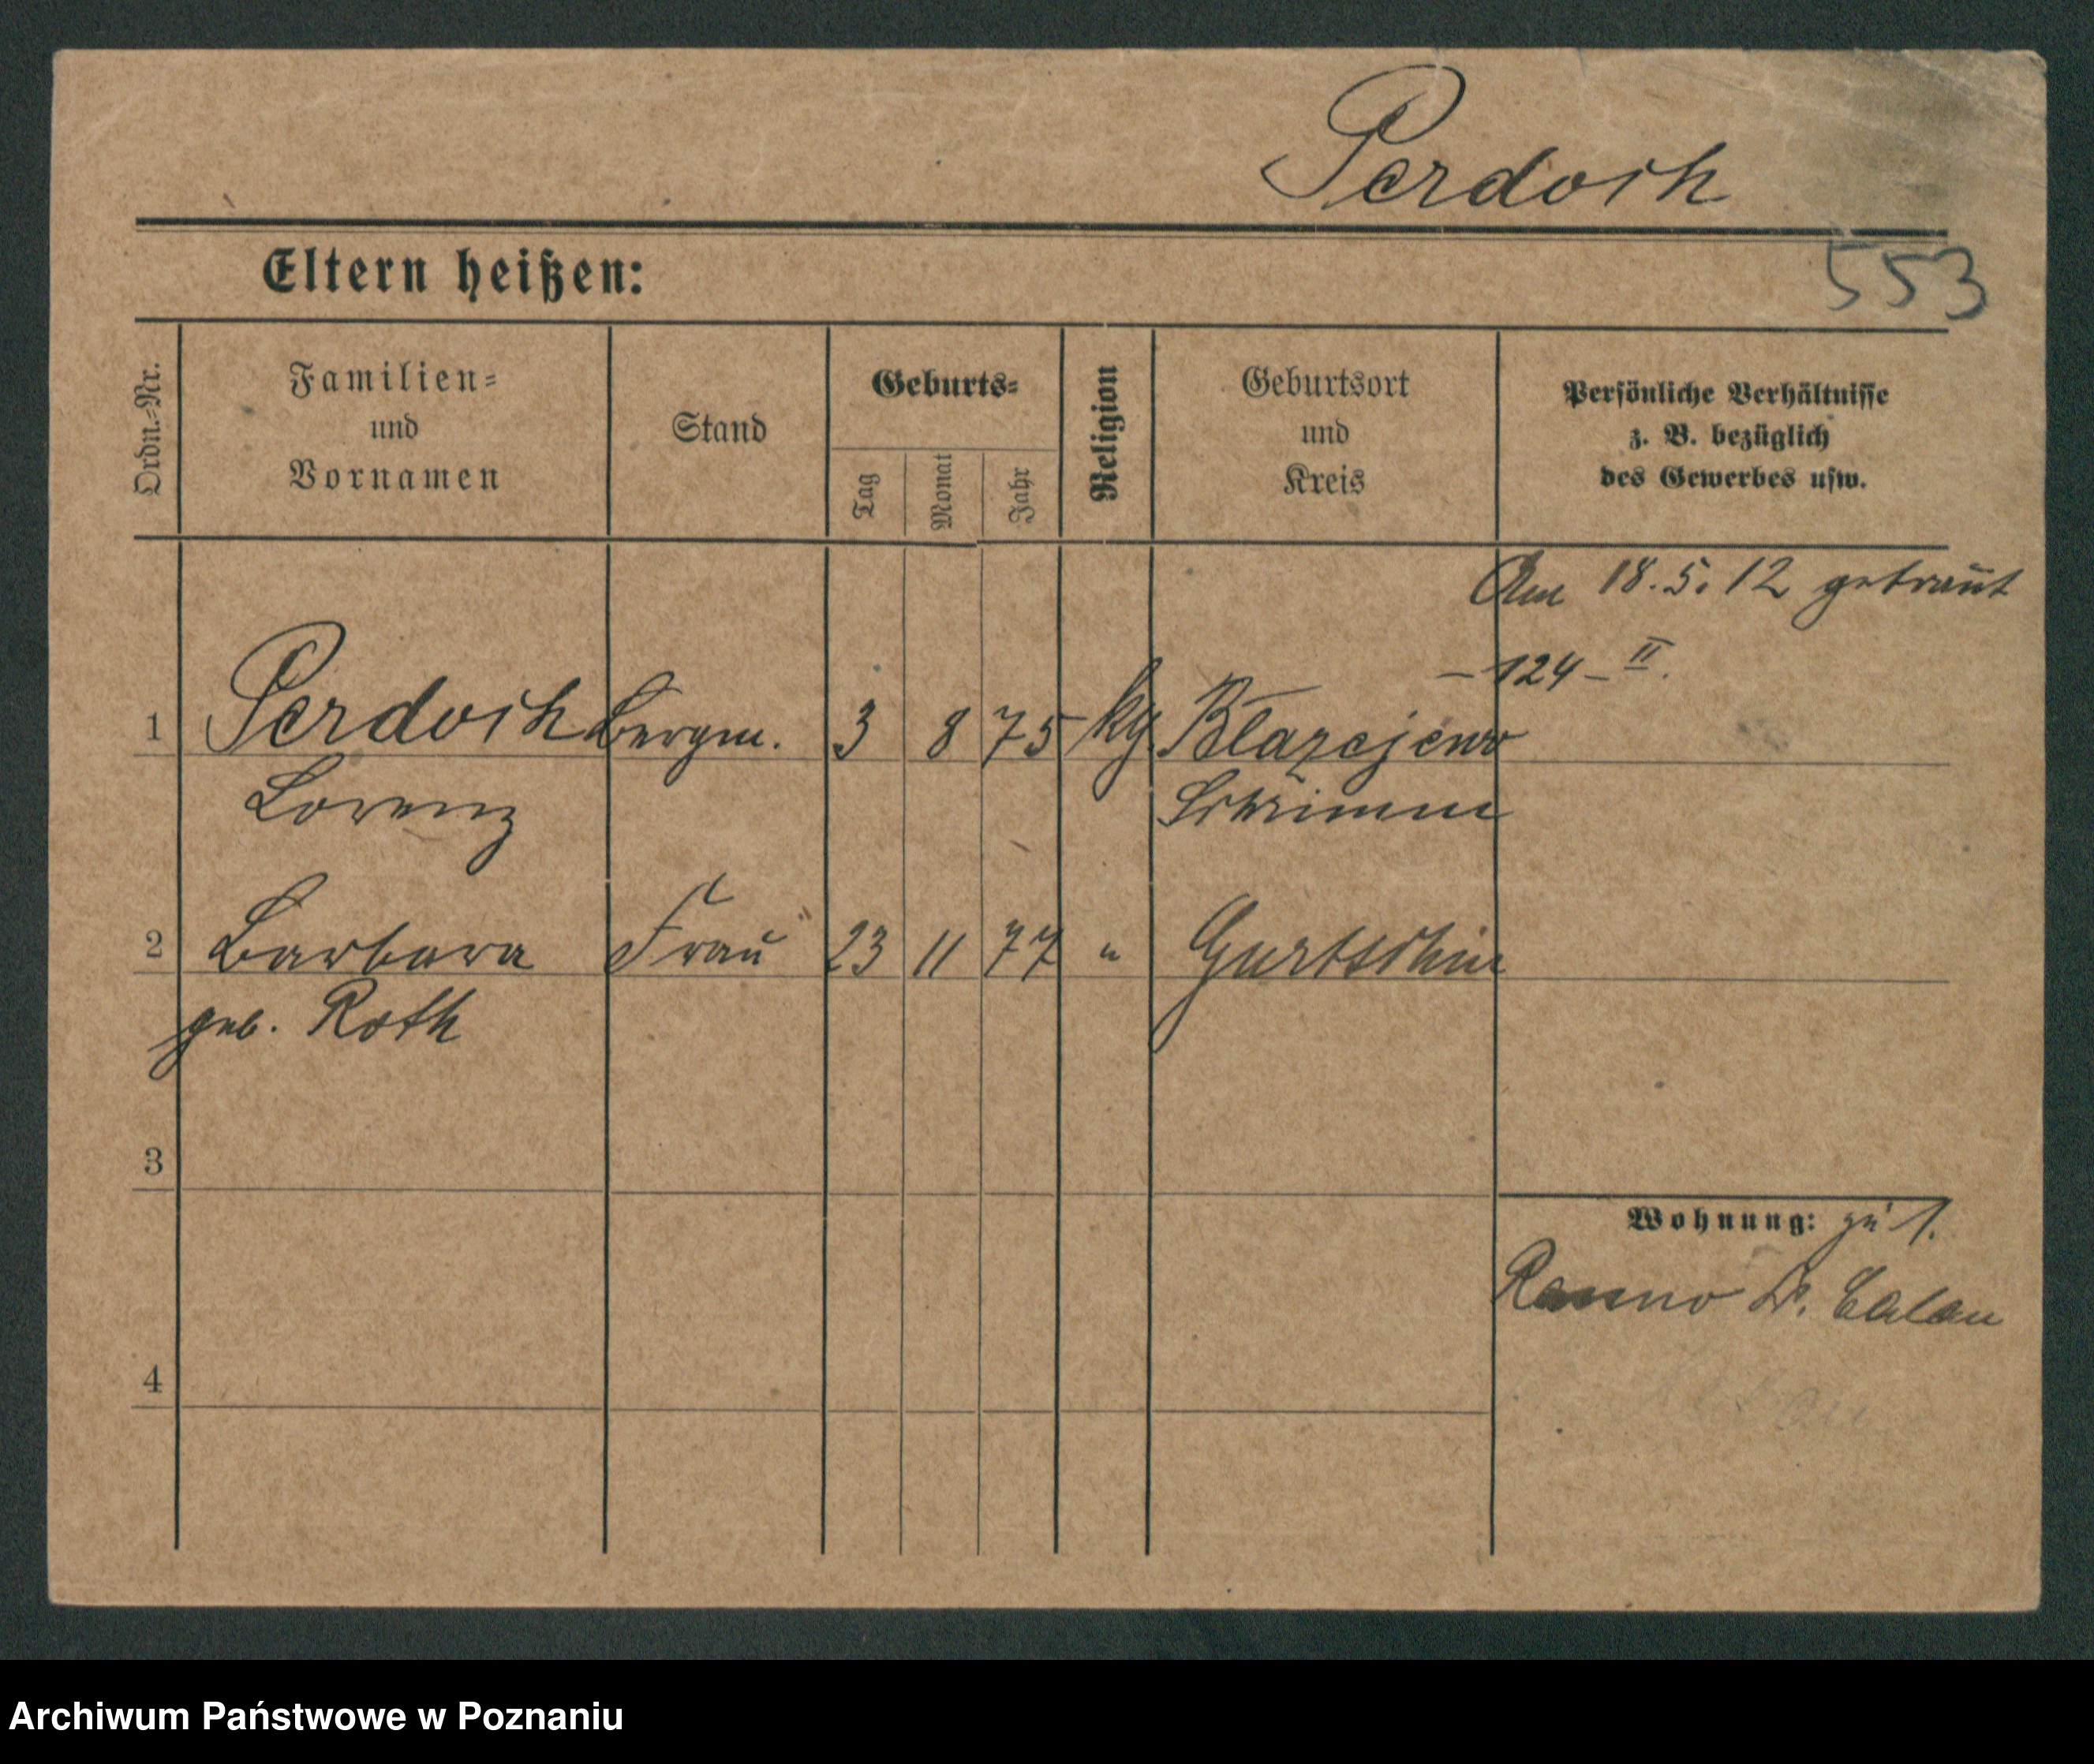 Perdoch
553
Eltern heißen:
Ordn.-Nr.
Familien-
und
Vornamen
Stand
Geburts-
Tag
Monat
Jahr
Religion
Geburtsort
und
Kreis
Persönliche Verhältnisse
z. B. bezüglich
des Gewerbes usw.
Am 18.5.12 getraut
- 124 - II.
1 Perdoch Bergm. 3 8 75 kg. Błazejewo
Lorenz Schrimm
2 Barbara Frau 23 11 77 " Gurtschin
geb. Roth
3
Wohnung: zu 1.
Kr. Calau
4
Archiwum Państwowe w Poznaniu